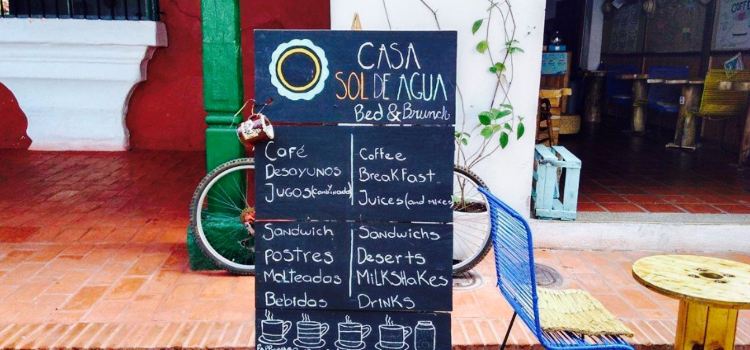 CASA
SOL DE AGUA
Bed & Brunch
Café
Desayunos
Jugos
Sandwich
Postres
Malteadas
Bebidas
Coffee
Breakfast
Juices (and mixes)
Sandwichs
Deserts
Milkshakes
Drinks